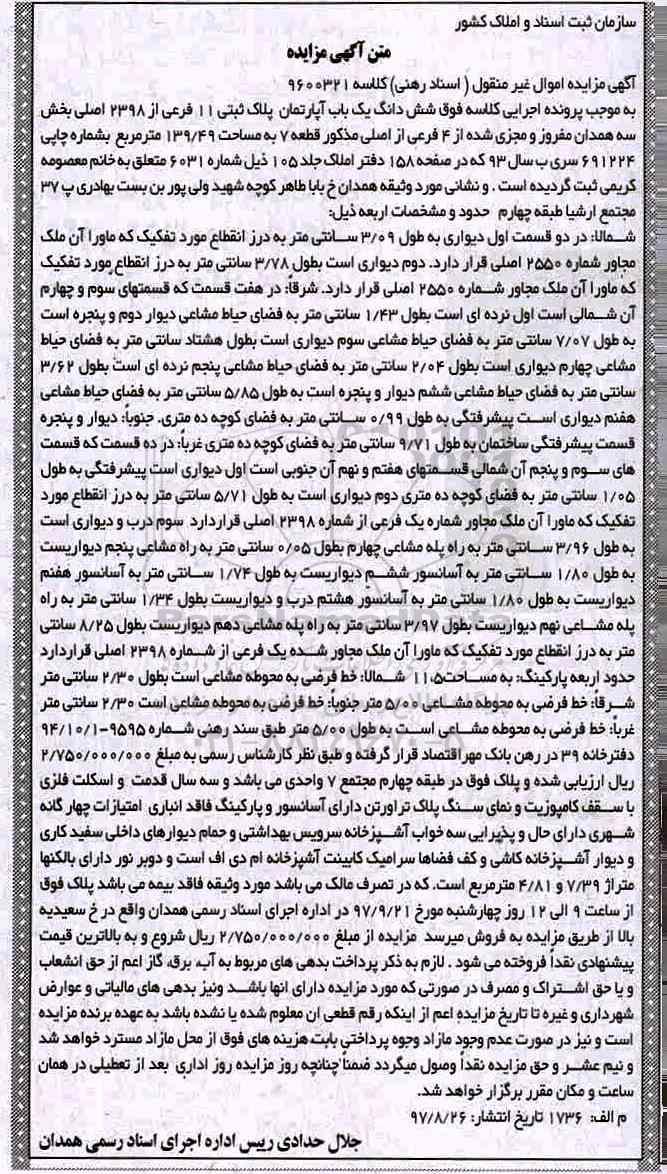 سازمان ثبت اسناد و املاک کشور
متن آگهی مزایده
آگهی مزایده اموال غیر منقول ( اسناد رهنی) کلاسه ۹۶۰۰۳۲۱
به موجب پرونده اجرایی کلاسه فوق شش دانگ یک باب آپارتمان پلاک ثبتی ۱۱ فرعی از ۲۳۹۸ اصلی بخش
سه همدان مفروز و مجزی شده از ۴ فرعی از اصلی مذکور قطعه ۷ به مساحت ۱۳۹/۴۹ مترمربع بشماره چاپی
۶۹۱۲۲۴ سری ب سال ۹۳ که در صفحه ۱۵۸ دفتر املاک جلد ۱۰۵ ذیل شماره ۶۰۳۱ متعلق به خانم معصومه
کریمی ثبت گردیده است . و نشانی مورد وثیقه همدان خ بابا طاهر کوچه شهید ولی پور بن بست بهادری پ ۳۷
مجتمع ارشیا طبقه چهارم حدود و مشخصات اربعه ذیل:
شمالا: در دو قسمت اول دیواری به طول ۳/۰۹ سانتی متر به درز انقطاع مورد تفکیک که ماورا آن ملک
مجاور شماره ۲۵۵۰ اصلی قرار دارد. دوم دیواری است بطول ۳/۷۸ سانتی متر به درز انقطاع مورد تفکیک
که ماورا آن ملک مجاور شماره ۲۵۵۰ اصلی قرار دارد. شرقاً: در هفت قسمت که قسمتهای سوم و چهارم
آن شمالی است اول نرده ای است بطول ۱/۴۳ سانتی متر به فضای حیاط مشاعی دیوار دوم و پنجره است
به طول ۷/۰۷ سانتی متر به فضای حیاط مشاعی سوم دیواری است بطول هشتاد سانتی متر به فضای حیاط
مشاعی چهارم دیواری است بطول ۲/۰۴ سانتی متر به فضای حیاط مشاعی پنجم نرده ای است بطول ۳/۶۲
سانتی متر به فضای حیاط مشاعی ششم دیوار و پنجره است به طول ۵/۸۵ سانتی متر به فضای حیاط مشاعی
هفتم دیواری است پیشرفتگی به طول ۰/۹۹ سانتی متر به فضای کوچه ده متری. جنوباً: دیوار و پنجره
قسمت پیشرفتگی ساختمان به طول ۹/۷۱ سانتی متر به فضای کوچه ده متری غرباً: در ده قسمت که قسمت
های سوم و پنجم آن شمالی قسمتهای هفتم و نهم آن جنوبی است اول دیواری است پیشرفتگی به طول
۱/۰۵ سانتی متر به فضای کوچه ده متری دوم دیواری است به طول ۵/۷۱ سانتی متر به درز انقطاع مورد
تفکیک که ماورا آن ملک مجاور شماره یک فرعی از شماره ۲۳۹۸ اصلی قراردارد سوم درب و دیواری است
به طول ۳/۹۶ سانتی متر به راه پله مشاعی چهارم بطول ۰/۰۵ سانتی متر به راه مشاعی پنجم دیواریست
به طول ۱/۸۰ سانتی متر به آسانسور ششم دیواریست به طول ۱/۷۴ سانتی متر به آسانسور هفتم
دیواریست به طول ۱/۸۰ سانتی متر به آسانسور هشتم درب و دیواریست بطول ۱/۳۴ سانتی متر به راه
پله مشاعی نهم دیواریست بطول ۳/۹۷ سانتی متر به راه پله مشاعی دهم دیواریست بطول ۸/۲۵ سانتی
متر به درز انقطاع مورد تفکیک که ماورا آن ملک مجاور شده یک فرعی از شماره ۲۳۹۸ اصلی قراردارد
حدود اربعه پارکینگ: به مساحت۱۱.۵ شمالا: خط فرضی به محوطه مشاعی است بطول ۲/۳۰ سانتی متر
شرقاً: خط فرضی به محوطه مشاعی ۵/۰۰ متر جنوباً: خط فرضی به محوطه مشاعی است ۲/۳۰ سانتی متر
غرباً: خط فرضی به محوطه مشاعی است به طول ۵/۰۰ متر طبق سند رهنی شماره ۹۵۹۵-۹۴/۱۰/۱
دفترخانه ۳۹ در رهن بانک مهر اقتصاد قرار گرفته و طبق نظر کارشناس رسمی به مبلغ ۲/۷۵۰/۰۰۰/۰۰۰
ریال ارزیابی شده و پلاک فوق در طبقه چهارم مجتمع ۷ واحدی می باشد و سه سال قدمت و اسکلت فلزی
با سقف کامپوزیت و نمای سنگ پلاک تراورتن دارای آسانسور و پارکینگ فاقد انباری امتیازات چهار گانه
شهری دارای حال و پذیرایی سه خواب آشپزخانه سرویس بهداشتی و حمام دیوارهای داخلی سفید کاری
و دیوار آشپزخانه کاشی و کف فضاها سرامیک کابینت آشپزخانه ام دی اف است و دوبر نور دارای بالکنها
متراژ ۷/۳۹ و ۴/۸۱ مترمربع است. که در تصرف مالک می باشد مورد وثیقه فاقد بیمه می باشد پلاک فوق
از ساعت ۹ الی ۱۲ روز چهارشنبه مورخ ۹۷/۹/۲۱ در اداره اجرای اسناد رسمی همدان واقع در خ سعیدیه
بالا از طریق مزایده به فروش میرسد مزایده از مبلغ ۲/۷۵۰/۰۰۰/۰۰۰ ریال شروع و به بالاترین قیمت
پیشنهادی نقداً فروخته می شود . لازم به ذکر پرداخت بدهی های مربوط به آب، برق، گاز اعم از حق انشعاب
و یا حق اشتراک و مصرف در صورتی که مورد مزایده دارای انها باشد ونیز بدهی های مالیاتی و عوارض
شهرداری و غیره تا تاریخ مزایده اعم از اینکه رقم قطعی ان معلوم شده یا نشده باشد به عهده برنده مزایده
است و نیز در صورت عدم وجود مازاد وجوه پرداختی بابت هزینه های فوق از محل مازاد مسترد خواهد شد
و نیم عشر و حق مزایده نقداً وصول میگردد ضمناً چنانچه روز مزایده روز اداری بعد از تعطیلی در همان
ساعت و مکان مقرر برگزار خواهد شد.
م الف: ۱۷۳۶ تاریخ انتشار: ۹۷/۸/۲۶
جلال حدادی رییس اداره اجرای اسناد رسمی همدان